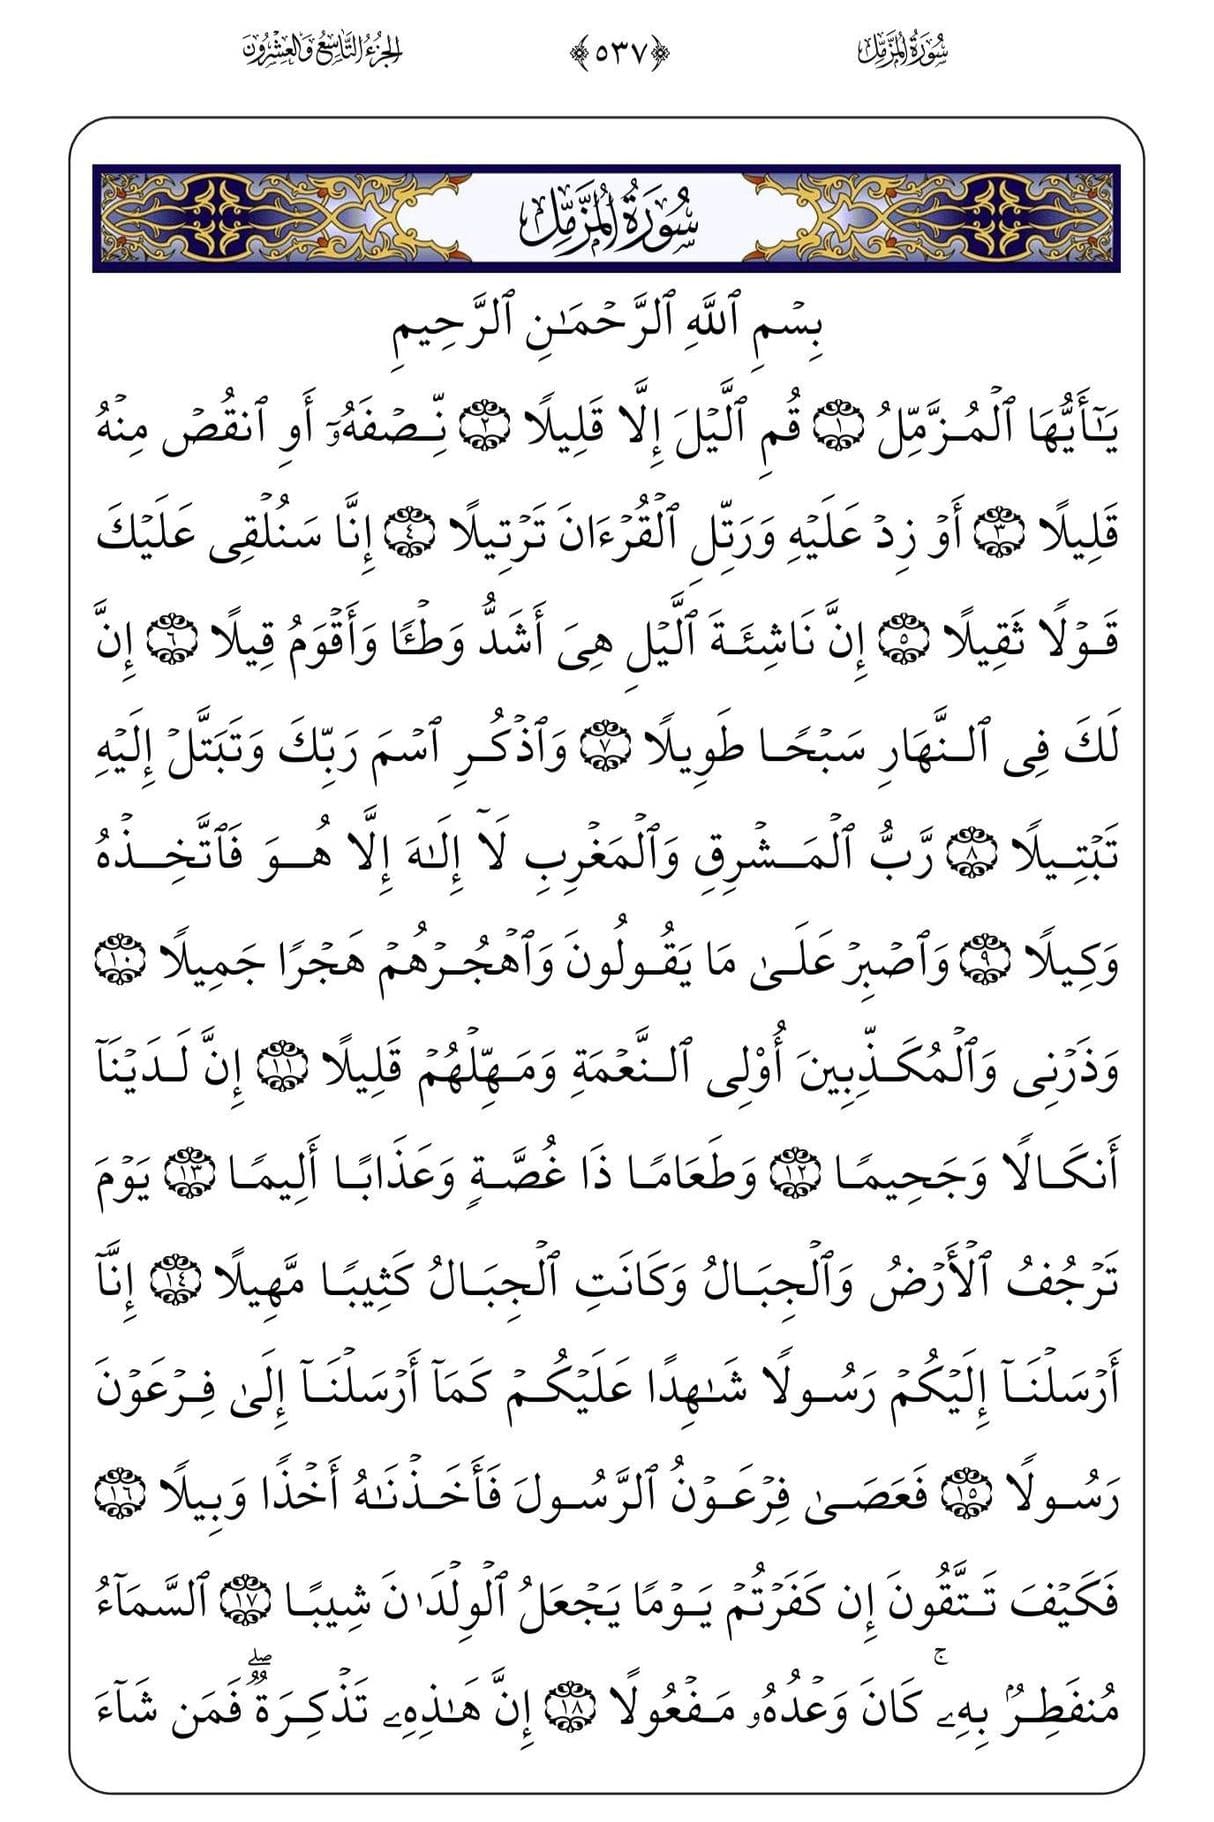 سُورَةُ الْمُزَّمِّل ﴿٥٣٧﴾ الجُزْءُ التَّاسِعُ وَالعِشْرُونَ
سُورَةُ الْمُزَّمِّل
بِسْمِ ٱللَّهِ ٱلرَّحْمَـٰنِ ٱلرَّحِيمِ
يَـٰٓأَيُّهَا ٱلْمُزَّمِّلُ ١ قُمِ ٱلَّيْلَ إِلَّا قَلِيلًا ٢ نِّصْفَهُۥٓ أَوِ ٱنقُصْ مِنْهُ
قَلِيلًا ٣ أَوْ زِدْ عَلَيْهِ وَرَتِّلِ ٱلْقُرْءَانَ تَرْتِيلًا ٤ إِنَّا سَنُلْقِى عَلَيْكَ
قَوْلًا ثَقِيلًا ٥ إِنَّ نَاشِئَةَ ٱلَّيْلِ هِىَ أَشَدُّ وَطْـًٔا وَأَقْوَمُ قِيلًا ٦ إِنَّ
لَكَ فِى ٱلنَّهَارِ سَبْحًا طَوِيلًا ٧ وَٱذْكُرِ ٱسْمَ رَبِّكَ وَتَبَتَّلْ إِلَيْهِ
تَبْتِيلًا ٨ رَّبُّ ٱلْمَشْرِقِ وَٱلْمَغْرِبِ لَآ إِلَـٰهَ إِلَّا هُوَ فَٱتَّخِذْهُ
وَكِيلًا ٩ وَٱصْبِرْ عَلَىٰ مَا يَقُولُونَ وَٱهْجُرْهُمْ هَجْرًا جَمِيلًا ١٠
وَذَرْنِى وَٱلْمُكَذِّبِينَ أُو۟لِى ٱلنَّعْمَةِ وَمَهِّلْهُمْ قَلِيلًا ١١ إِنَّ لَدَيْنَآ
أَنكَالًا وَجَحِيمًا ١٢ وَطَعَامًا ذَا غُصَّةٍ وَعَذَابًا أَلِيمًا ١٣ يَوْمَ
تَرْجُفُ ٱلْأَرْضُ وَٱلْجِبَالُ وَكَانَتِ ٱلْجِبَالُ كَثِيبًا مَّهِيلًا ١٤ إِنَّآ
أَرْسَلْنَآ إِلَيْكُمْ رَسُولًا شَـٰهِدًا عَلَيْكُمْ كَمَآ أَرْسَلْنَآ إِلَىٰ فِرْعَوْنَ
رَسُولًا ١٥ فَعَصَىٰ فِرْعَوْنُ ٱلرَّسُولَ فَأَخَذْنَـٰهُ أَخْذًا وَبِيلًا ١٦
فَكَيْفَ تَتَّقُونَ إِن كَفَرْتُمْ يَوْمًا يَجْعَلُ ٱلْوِلْدَٰنَ شِيبًا ١٧ ٱلسَّمَآءُ
مُنفَطِرٌۢ بِهِۦ ۚ كَانَ وَعْدُهُۥ مَفْعُولًا ١٨ إِنَّ هَـٰذِهِۦ تَذْكِرَةٌ ۖ فَمَن شَآءَ